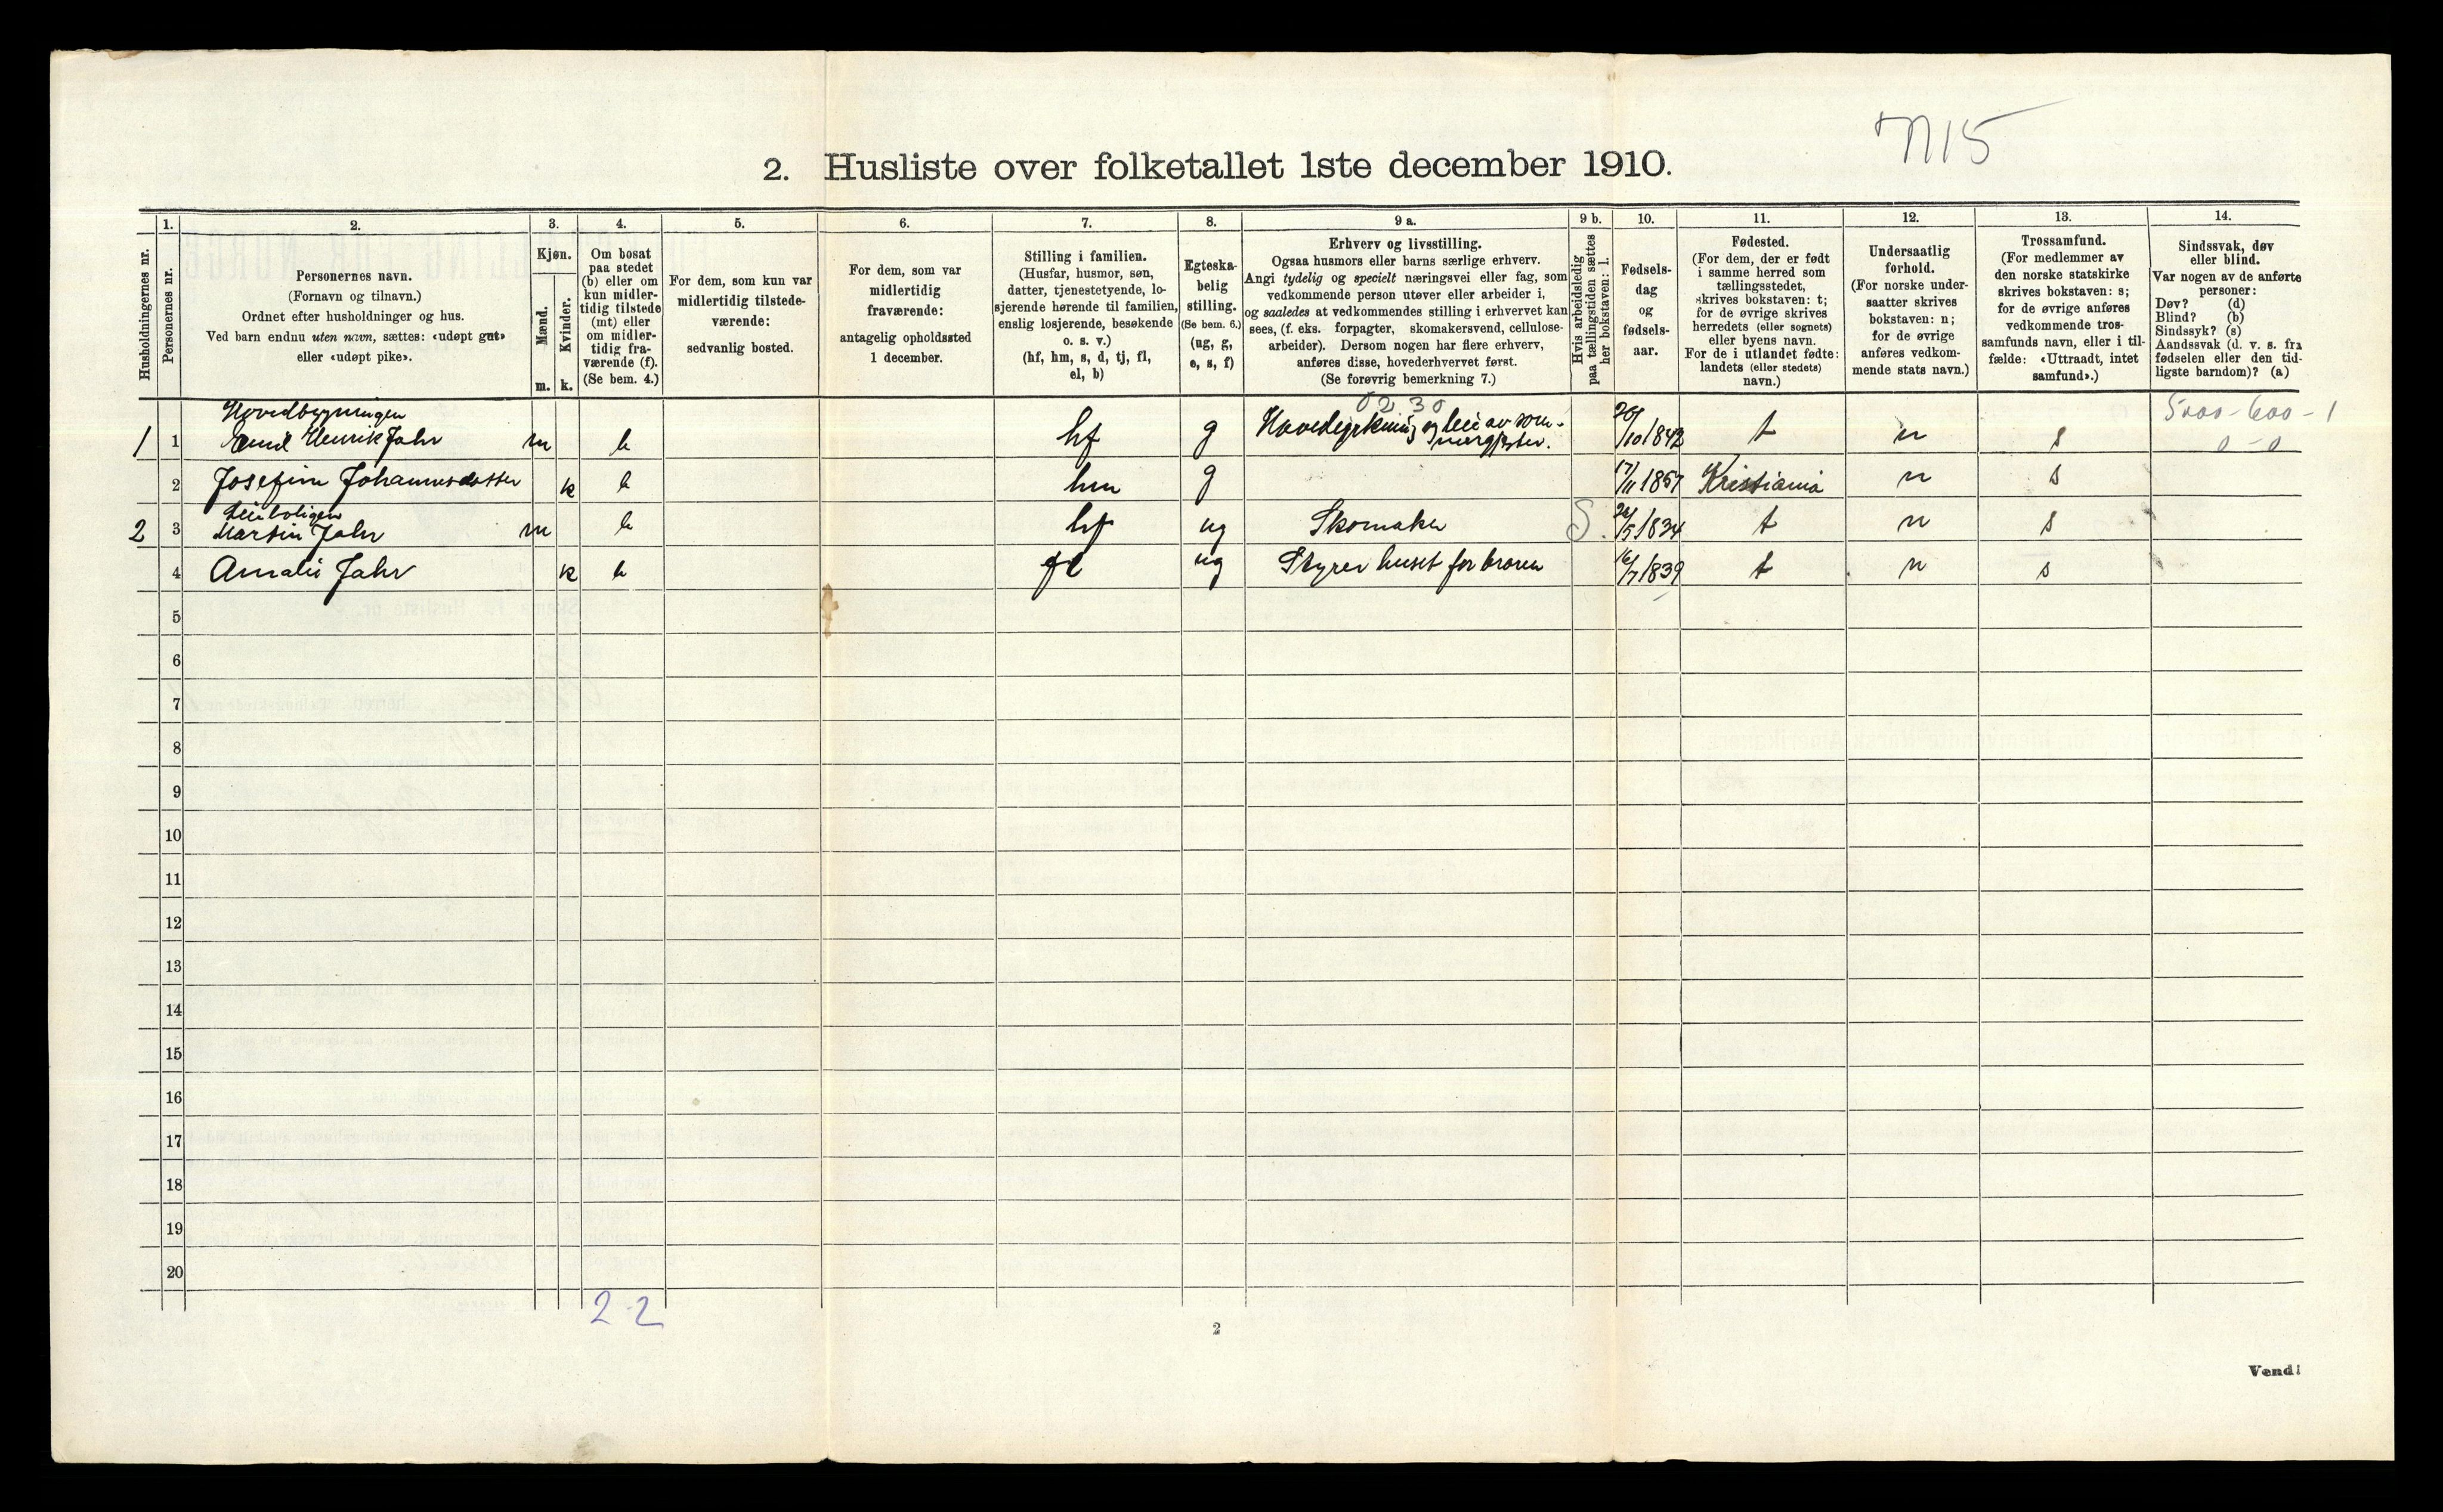 7715
2. Husliste over folketallet 1ste december 1910.
Husholdningernes nr.
1.
Personernes nr.
2.
Personernes navn.
(Fornavn og tilnavn.)
Ordnet efter husholdninger og hus.
Ved barn endnu uten navn, sættes: «udøpt gut»
eller «udøpt pike».
3.
Kjøn.
Mænd.
Kvinder.
m. k.
4.
Om bosat
paa stedet
(b) eller om
kun midler-
tidig tilstede
(mt) eller
om midler-
tidig fra-
værende (f).
(Se bem. 4.)
5.
For dem, som kun var
midlertidig tilstede-
værende:
sedvanlig bosted.
6.
For dem, som var
midlertidig
fraværende:
antagelig opholdssted
1 december.
7.
Stilling i familien.
(Husfar, husmor, søn,
datter, tjenestetyende, lo-
sjerende hørende til familien,
enslig losjerende, besøkende
o. s. v.)
(hf, hm, s, d, tj, fl,
el, b)
8.
Egteska-
belig
stilling.
(Se bem. 6.)
(ug, g,
e, s, f)
9 a.
Erhverv og livsstilling.
Ogsaa husmors eller barns særlige erhverv.
Angi tydelig og specielt næringsvei eller fag, som
vedkommende person utøver eller arbeider i,
og saaledes at vedkommendes stilling i erhvervet kan
sees, (f. eks. forpagter, skomakersvend, cellulose-
arbeider). Dersom nogen har flere erhverv,
anføres disse, hovederhvervet først.
(Se forøvrig bemerkning 7.)
9 b.
Hvis arbeidsledig
paa tællingstiden sættes
her bokstaven: l.
10.
Fødsels-
dag
og
fødsels-
aar.
11.
Fødested.
(For dem, der er født
i samme herred som
tællingsstedet,
skrives bokstaven: t;
for de øvrige skrives
herredets (eller sognets)
eller byens navn.
For de i utlandet fødte:
landets (eller stedets)
navn.)
12.
Undersaatlig
forhold.
(For norske under-
saatter skrives
bokstaven: n;
for de øvrige
anføres vedkom-
mende stats navn.)
13.
Trossamfund.
(For medlemmer av
den norske statskirke
skrives bokstaven: s;
for de øvrige anføres
vedkommende tros-
samfunds navn, eller i til-
fælde: «Uttraadt, intet
samfund».)
14.
Sindssvak, døv
eller blind.
Var nogen av de anførte
personer:
Døv? (d)
Blind? (b)
Sindssyk? (s)
Aandssvak (d. v. s. fra
fødselen eller den tid-
ligste barndom)? (a)
Hovedbygningen 0230 5000-600-1
1 1 Emil Henrik Jahr m b hf g Havedyrkning og leie av som- 20/10 1842 t n s 0-0
mergjester.
2 Josefine Johannesdatter k b hm g 17/11 1857 Kristiania n s
Leieboligen
2 3 Martin Jahr m b hf ug Skomaker S. 1834 t n s
4 Amalie Jahr k b fl ug Styrer huset for broren 16/7 1839 t n s
5
6
7
8
9
10
11
12
13
14
15
16
17
18
19
20
2-2
2
Vend!